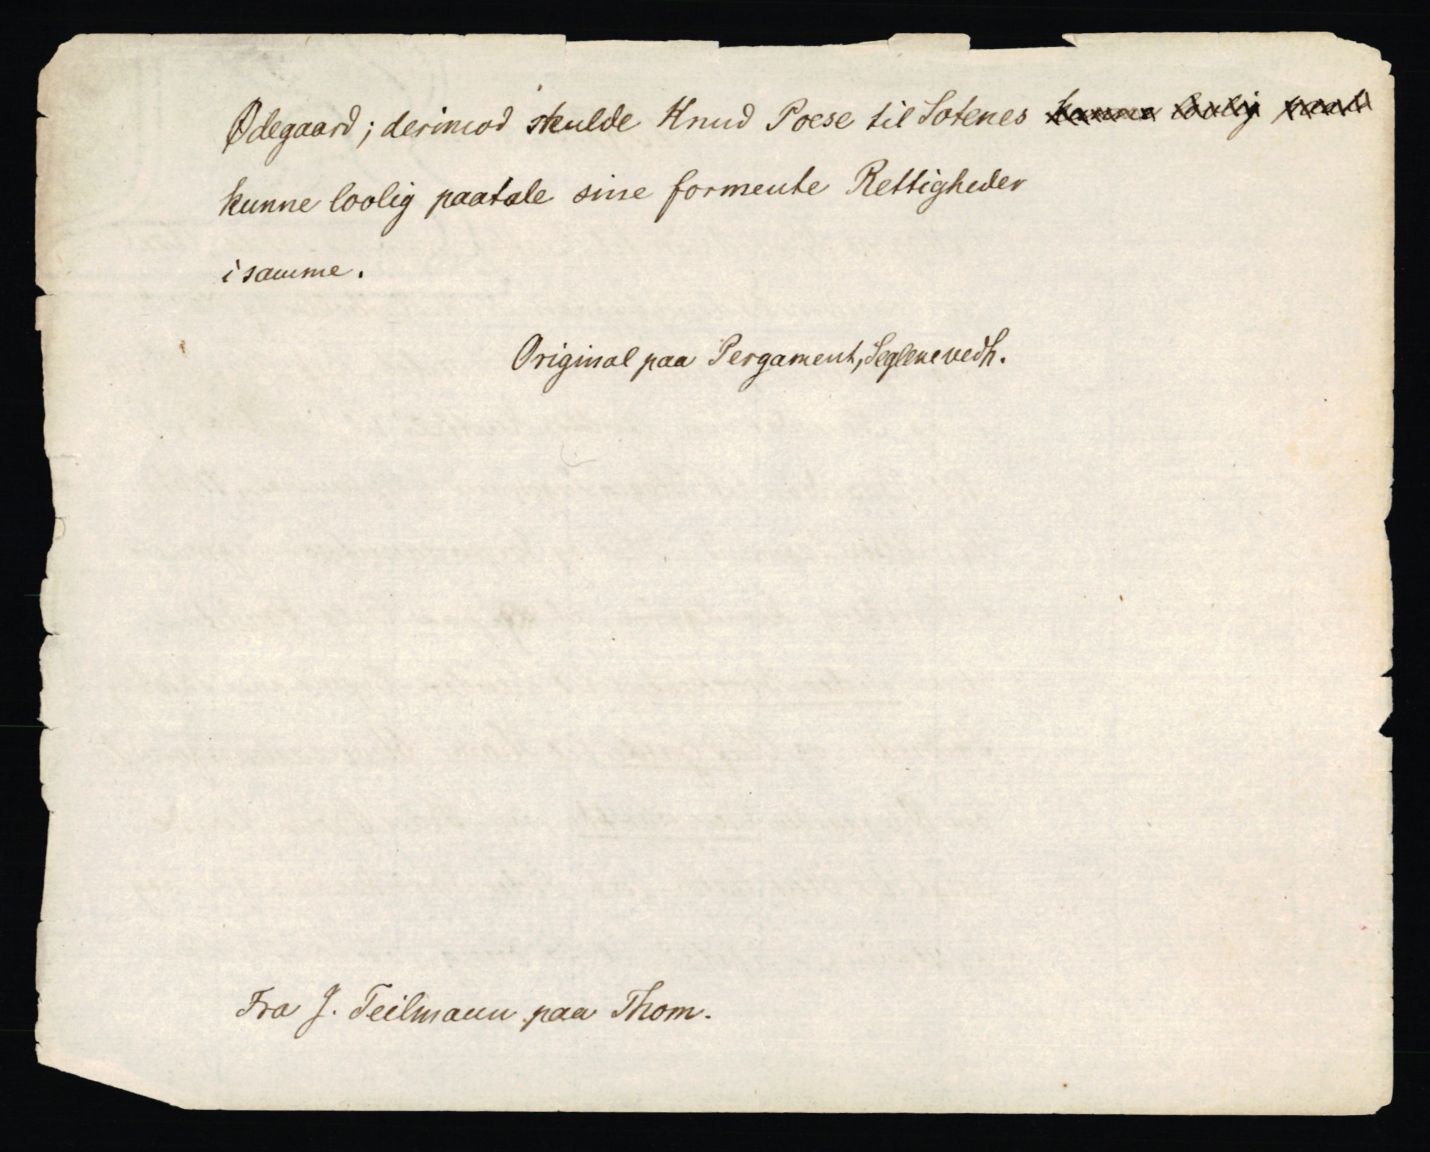 Ødegaard; derimod skulde Knud Poese til Sotenes kunne lovlig paat
kunne lovlig paatale sine formente Rettigheder
i samme.
Original paa Pergament, Seglene vedh.
Fra J. Teilmann paa Thom.